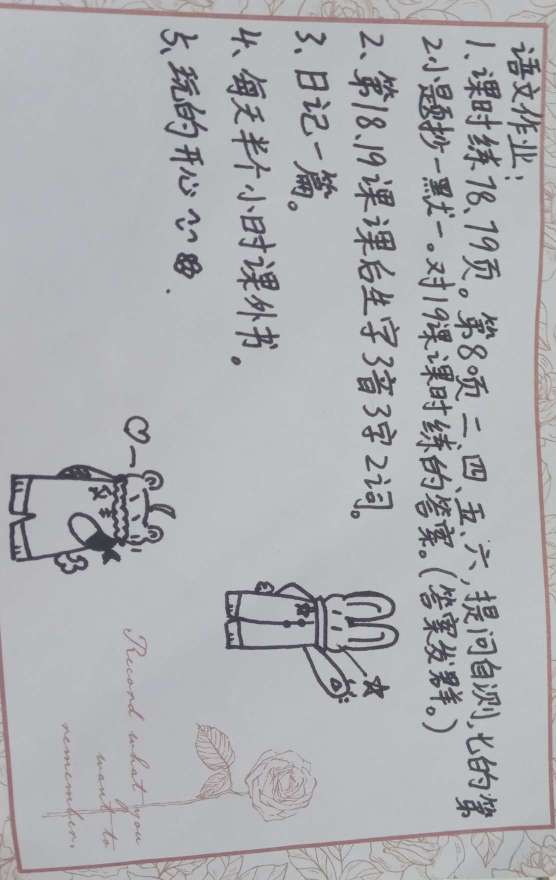 语文作业：
1、课时练78、79页。第80页二、四、五、六，提问自测，七的第
2小题抄一默一。对19课课时练的答案。（答案发群。）
2、第18、19课课后生字3音3字2词。
3、日记一篇。
4、每天半个小时课外书。
5、玩的开心
Record what you
want to
remember.